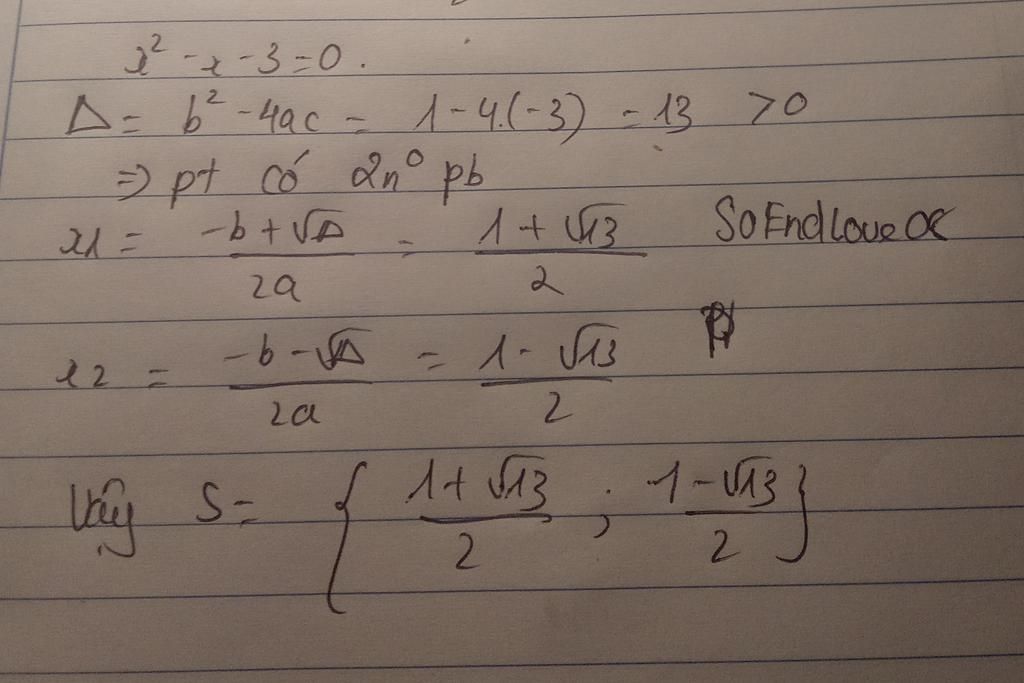 x² - x - 3 = 0.
Δ = b² - 4ac = 1 - 4.(-3) = 13 > 0
=> pt có 2n⁰ pb
x1 = (-b + √Δ)/2a = (1 + √13)/2 SoEndLoveOC
x2 = (-b - √Δ)/2a = (1 - √13)/2
Vậy S = { (1 + √13)/2 ; (1 - √13)/2 }